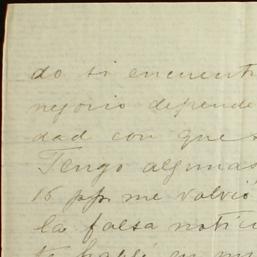 do si encuent
negocio depende
dad con que
Tengo algunas
15 ppp. me volvió
la falsa notic
te hablé en mi